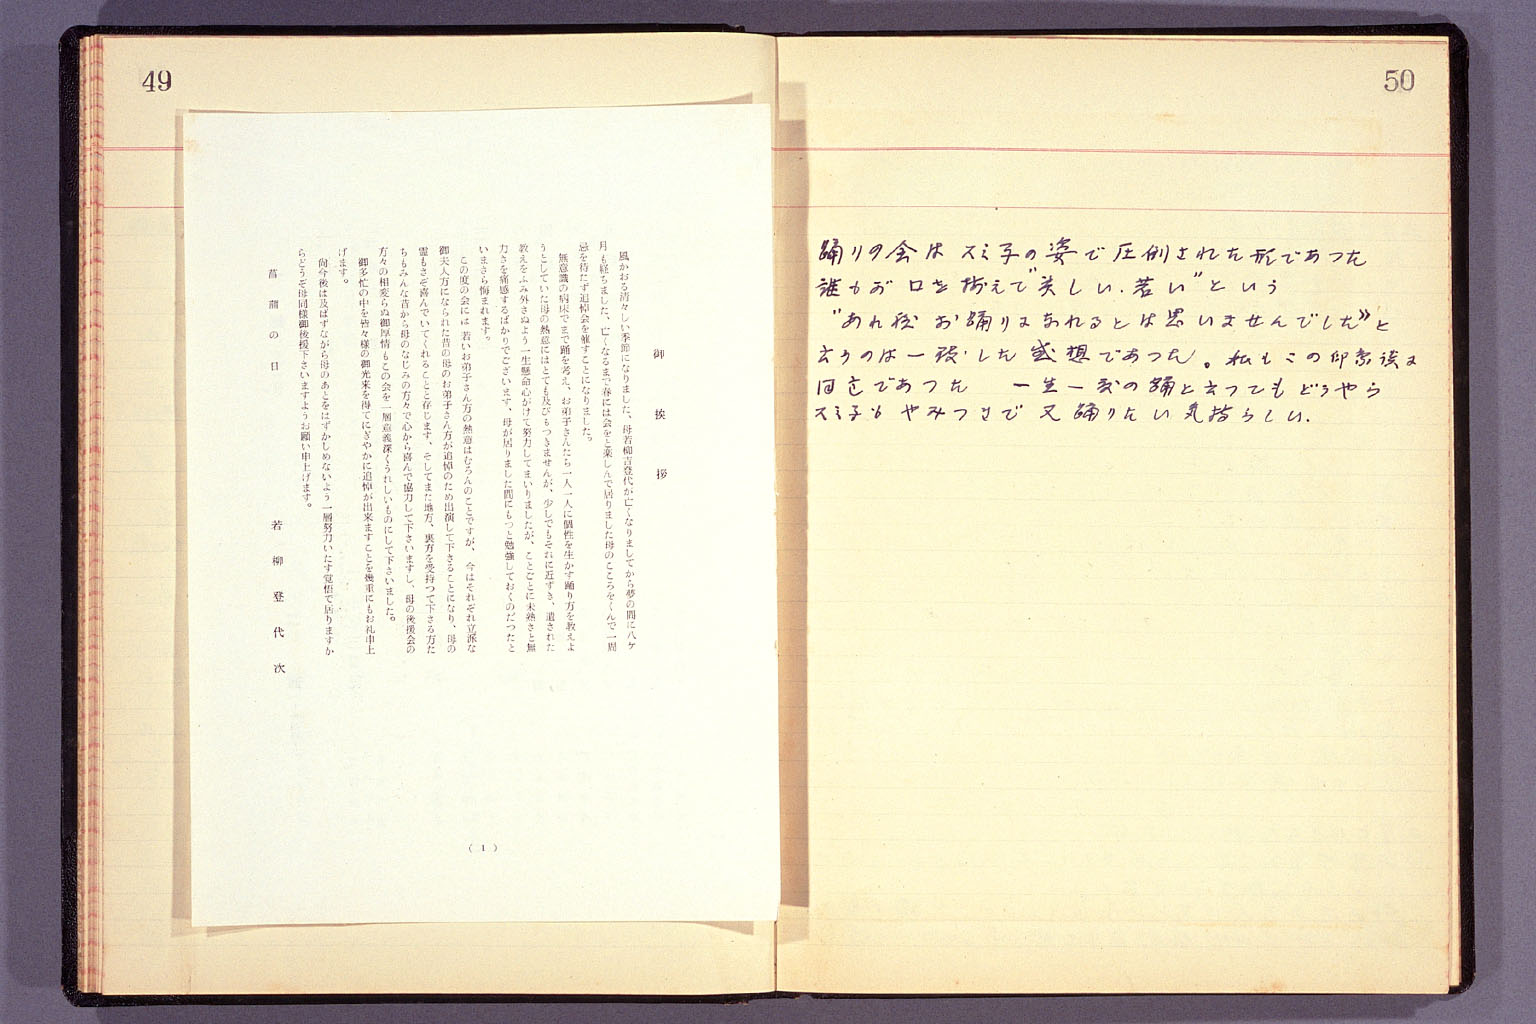 49
御挨拶
風かおる清々しい季節になりました、母若柳吉登代が亡くなりましてから夢の間に八ケ
月も経ちました、亡くなるまで春には会をと楽しんで居りました母のこころをくんで一周
忌を待たず追悼会を催すことになりました。
無意識の病床でまで踊を考え、お弟子さんたち一人一人に個性を生かす踊り方を教えよ
うとしていた母の熱意にはとても及びもつきませんが、少しでもそれに近ずき、遺された
教えをふみ外さぬよう一生懸命心がけて努力してまいりましたが、ことごとに未熟さと無
力さを痛感するばかりでございます、母が居りました間にもつと勉強しておくのだつたと
いまさら悔まれます。
この度の会には 若いお弟子さん方の熱意はむろんのことですが、今はそれぞれ立派な
御夫人方になられた昔の母のお弟子さん方が追悼のため出演して下さることになり、母の
霊もさぞ喜んでいてくれることと存じます、そしてまた地方、裏方を受持つて下さる方た
ちもみんな昔から母のなじみの方々で心から喜んで協力して下さいますし、母の後援会の
方々の相変らぬ御厚情もこの会を一層意義深くうれしいものにして下さいました。
御多忙の中を皆々様の御光来を得てにぎやかに追悼が出来ますことを幾重にもお礼申上
げます。
尚今後は及ばずながら母のあとをはずかしめないよう一層努力いたす覚悟で居りますか
らどうぞ母同様御後援下さいますようお願い申上げます。
菖蒲の日
若柳登代次
(1)
50
踊りの会は スミ子の姿で圧倒された形であつた
誰もが 口を揃えて"美しい.若い"という
"あれ程 お踊りになれるとは思いませんでした"と
云うのは一致した感想であつた。私もこの印象後は
同じであつた 一生一度の踊と云つてもどうやら
スミ子も やみつきで 又踊りたい気持らしい.